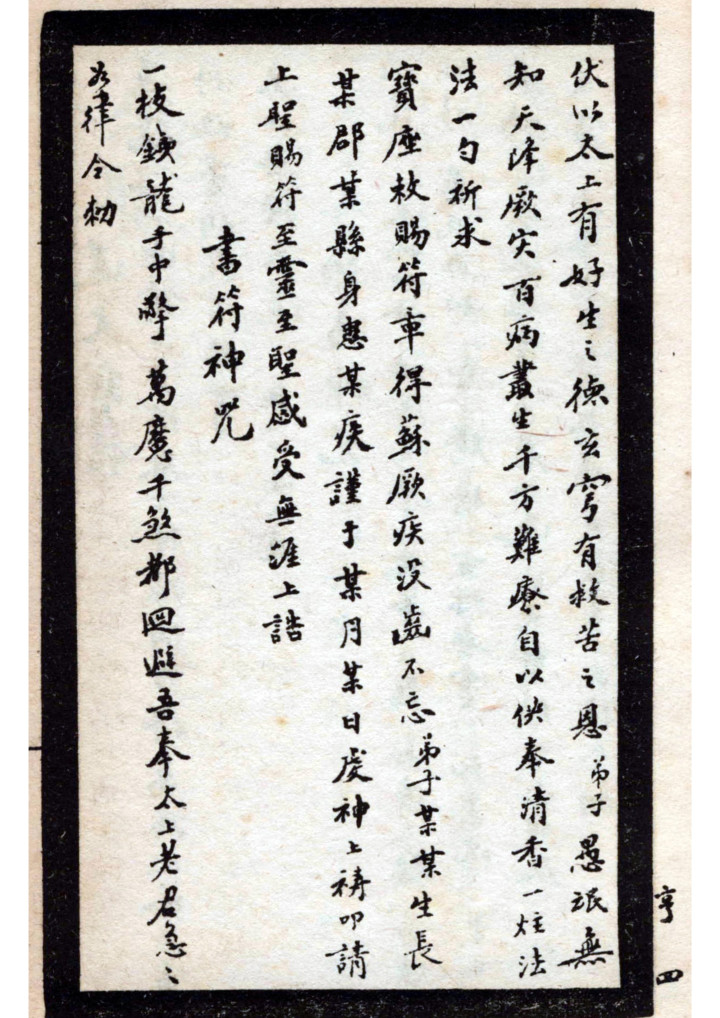 伏以太上有好生之德玄穹有救苦之恩弟子愚氓無
知天降厥災百病叢生千方難療自以供奉清香一炷法
法一勺祈求
寶座敕賜符章得蘇厥疾沒齒不忘弟子某某生長
某郡某縣身患某疾謹于某月某日虔神上禱叩請
上聖賜符至靈至聖感受無涯上誥
書符神咒
一枝鐵龍手中擎萬魔千煞都迴避吾奉太上老君急〻
如律令勅
亨 四